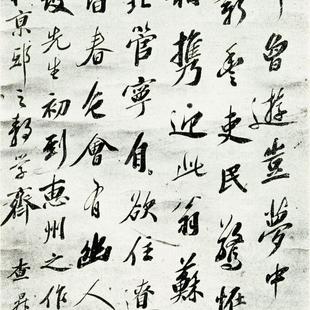 曾遊豈夢中
新豐吏民驚怪
相攜迎此翁蘇
北管寧自欲住遼
皆春色會有幽人
坡先生初到惠州之作
京邸之學齋查昇